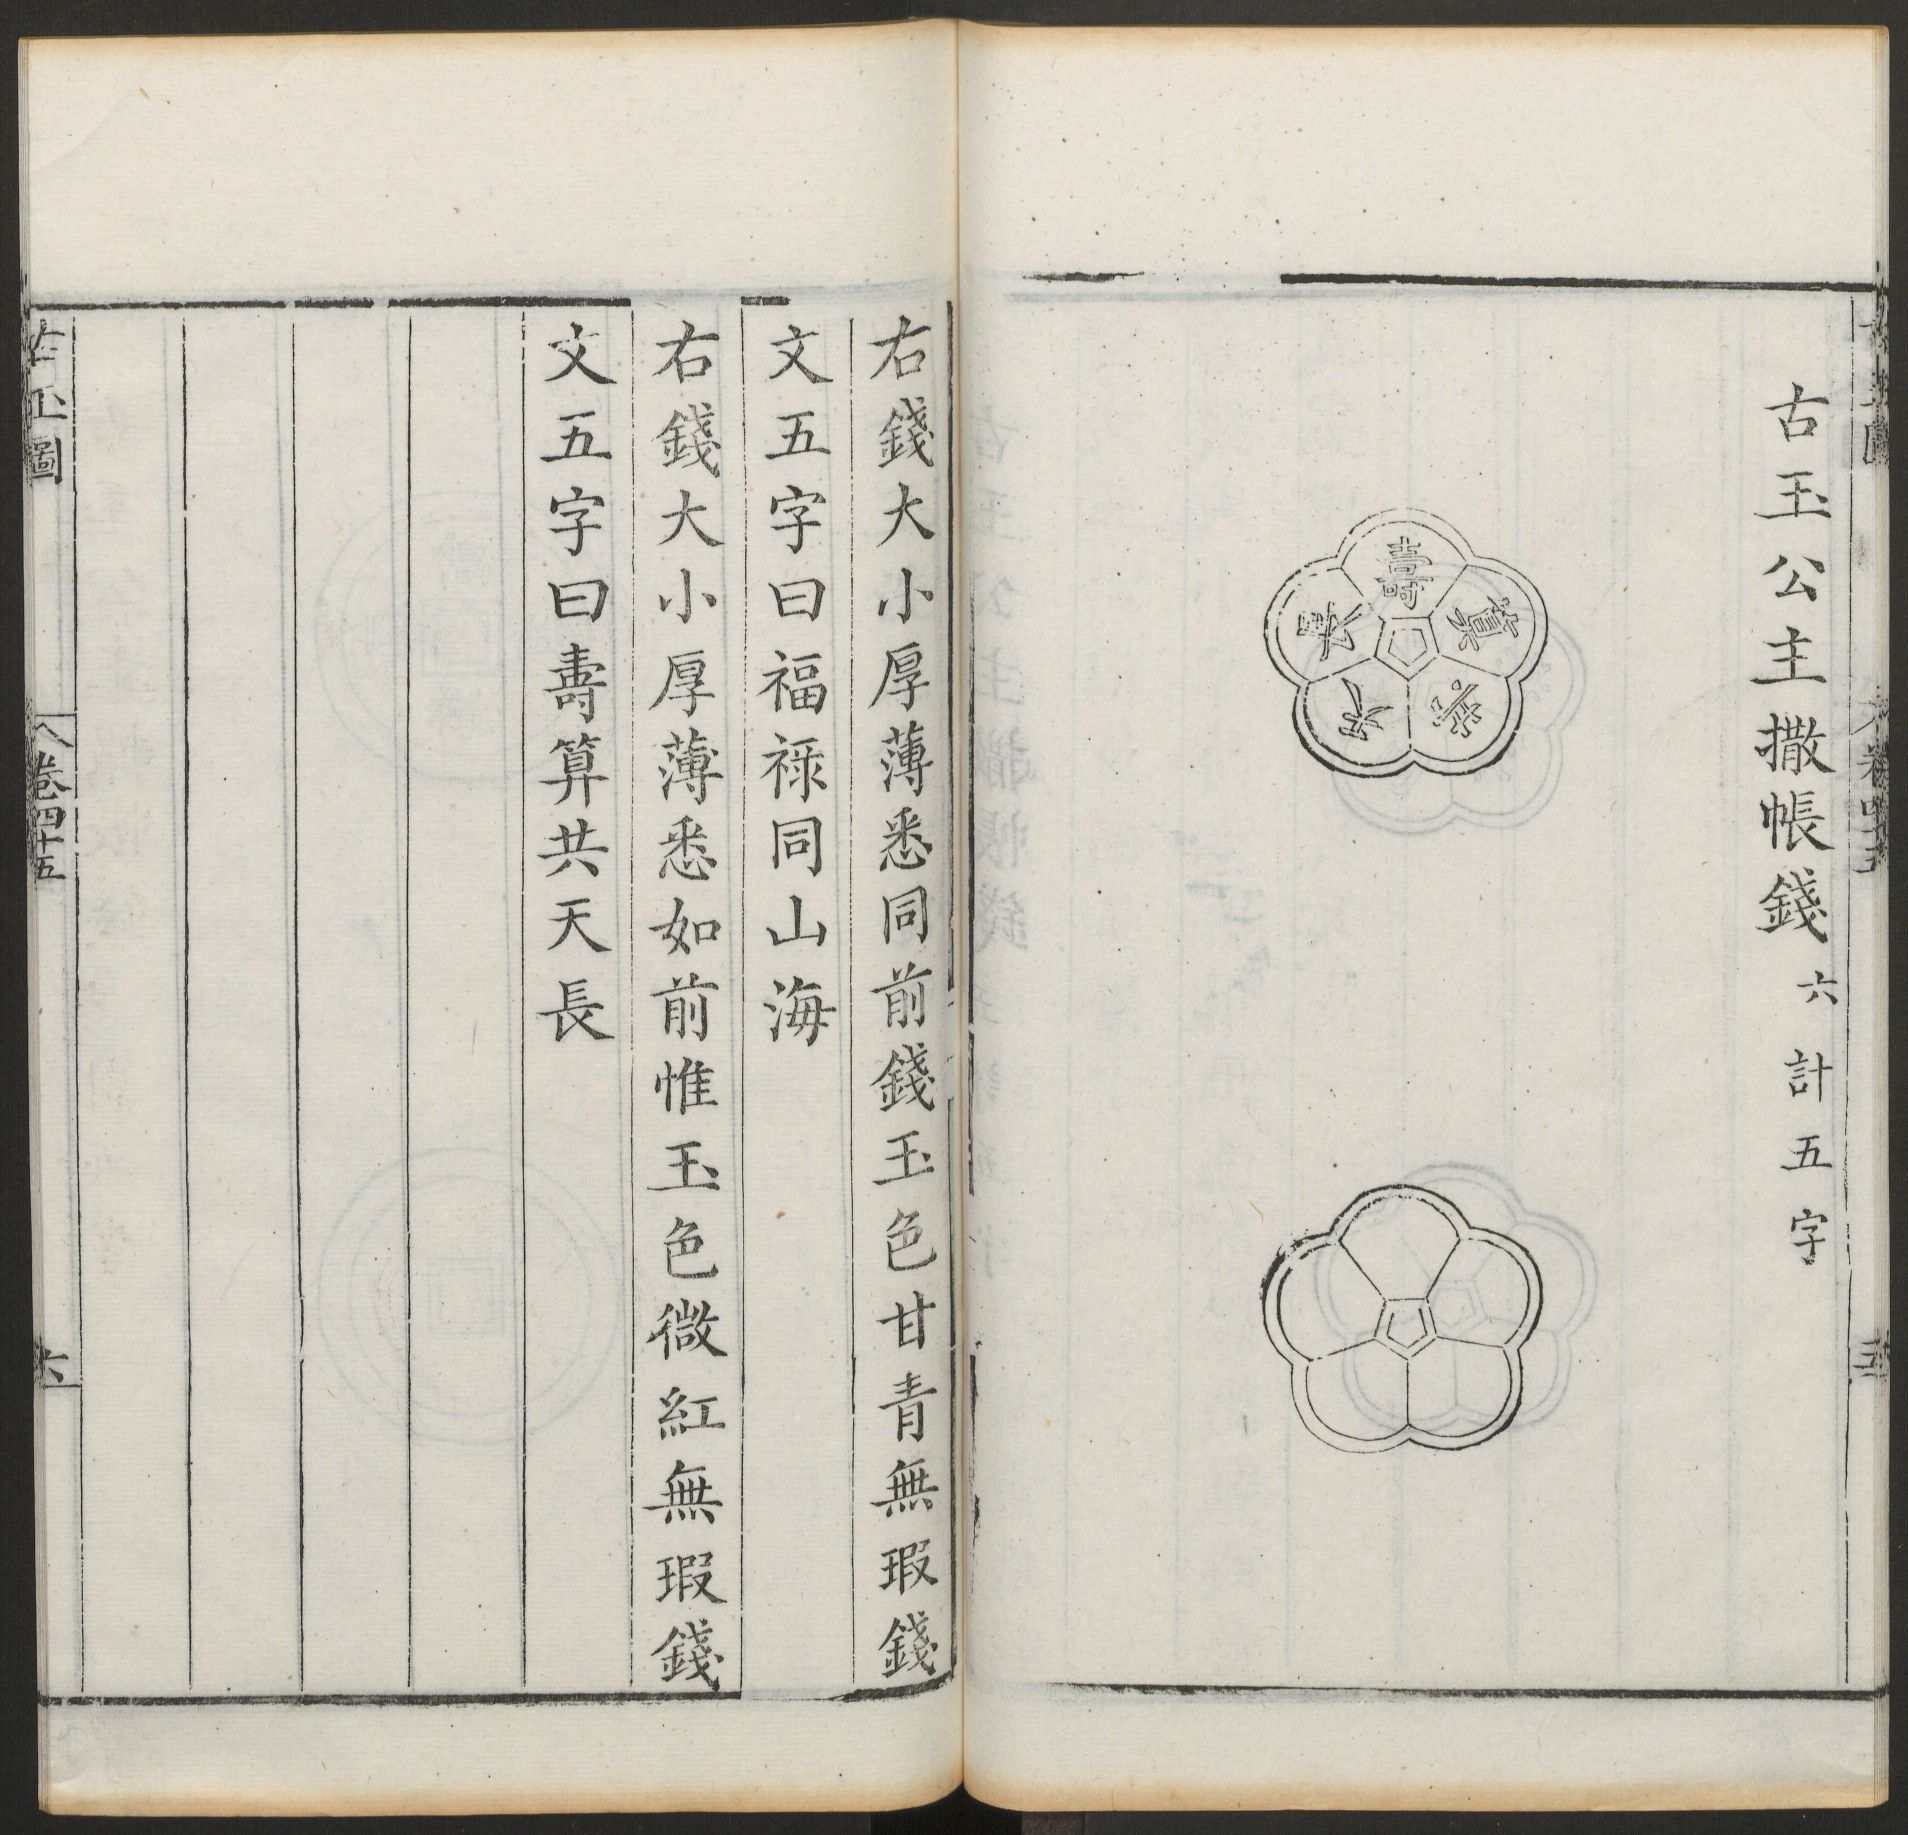 古玉公主撒帳錢六計五字
壽
右錢大小厚薄悉同前錢玉色甘青無瑕錢
文五字曰福祿同山海
右錢大小厚薄悉如前惟玉色微紅無瑕錢
文五字曰壽算共天長
古玉圖
卷四十五
六